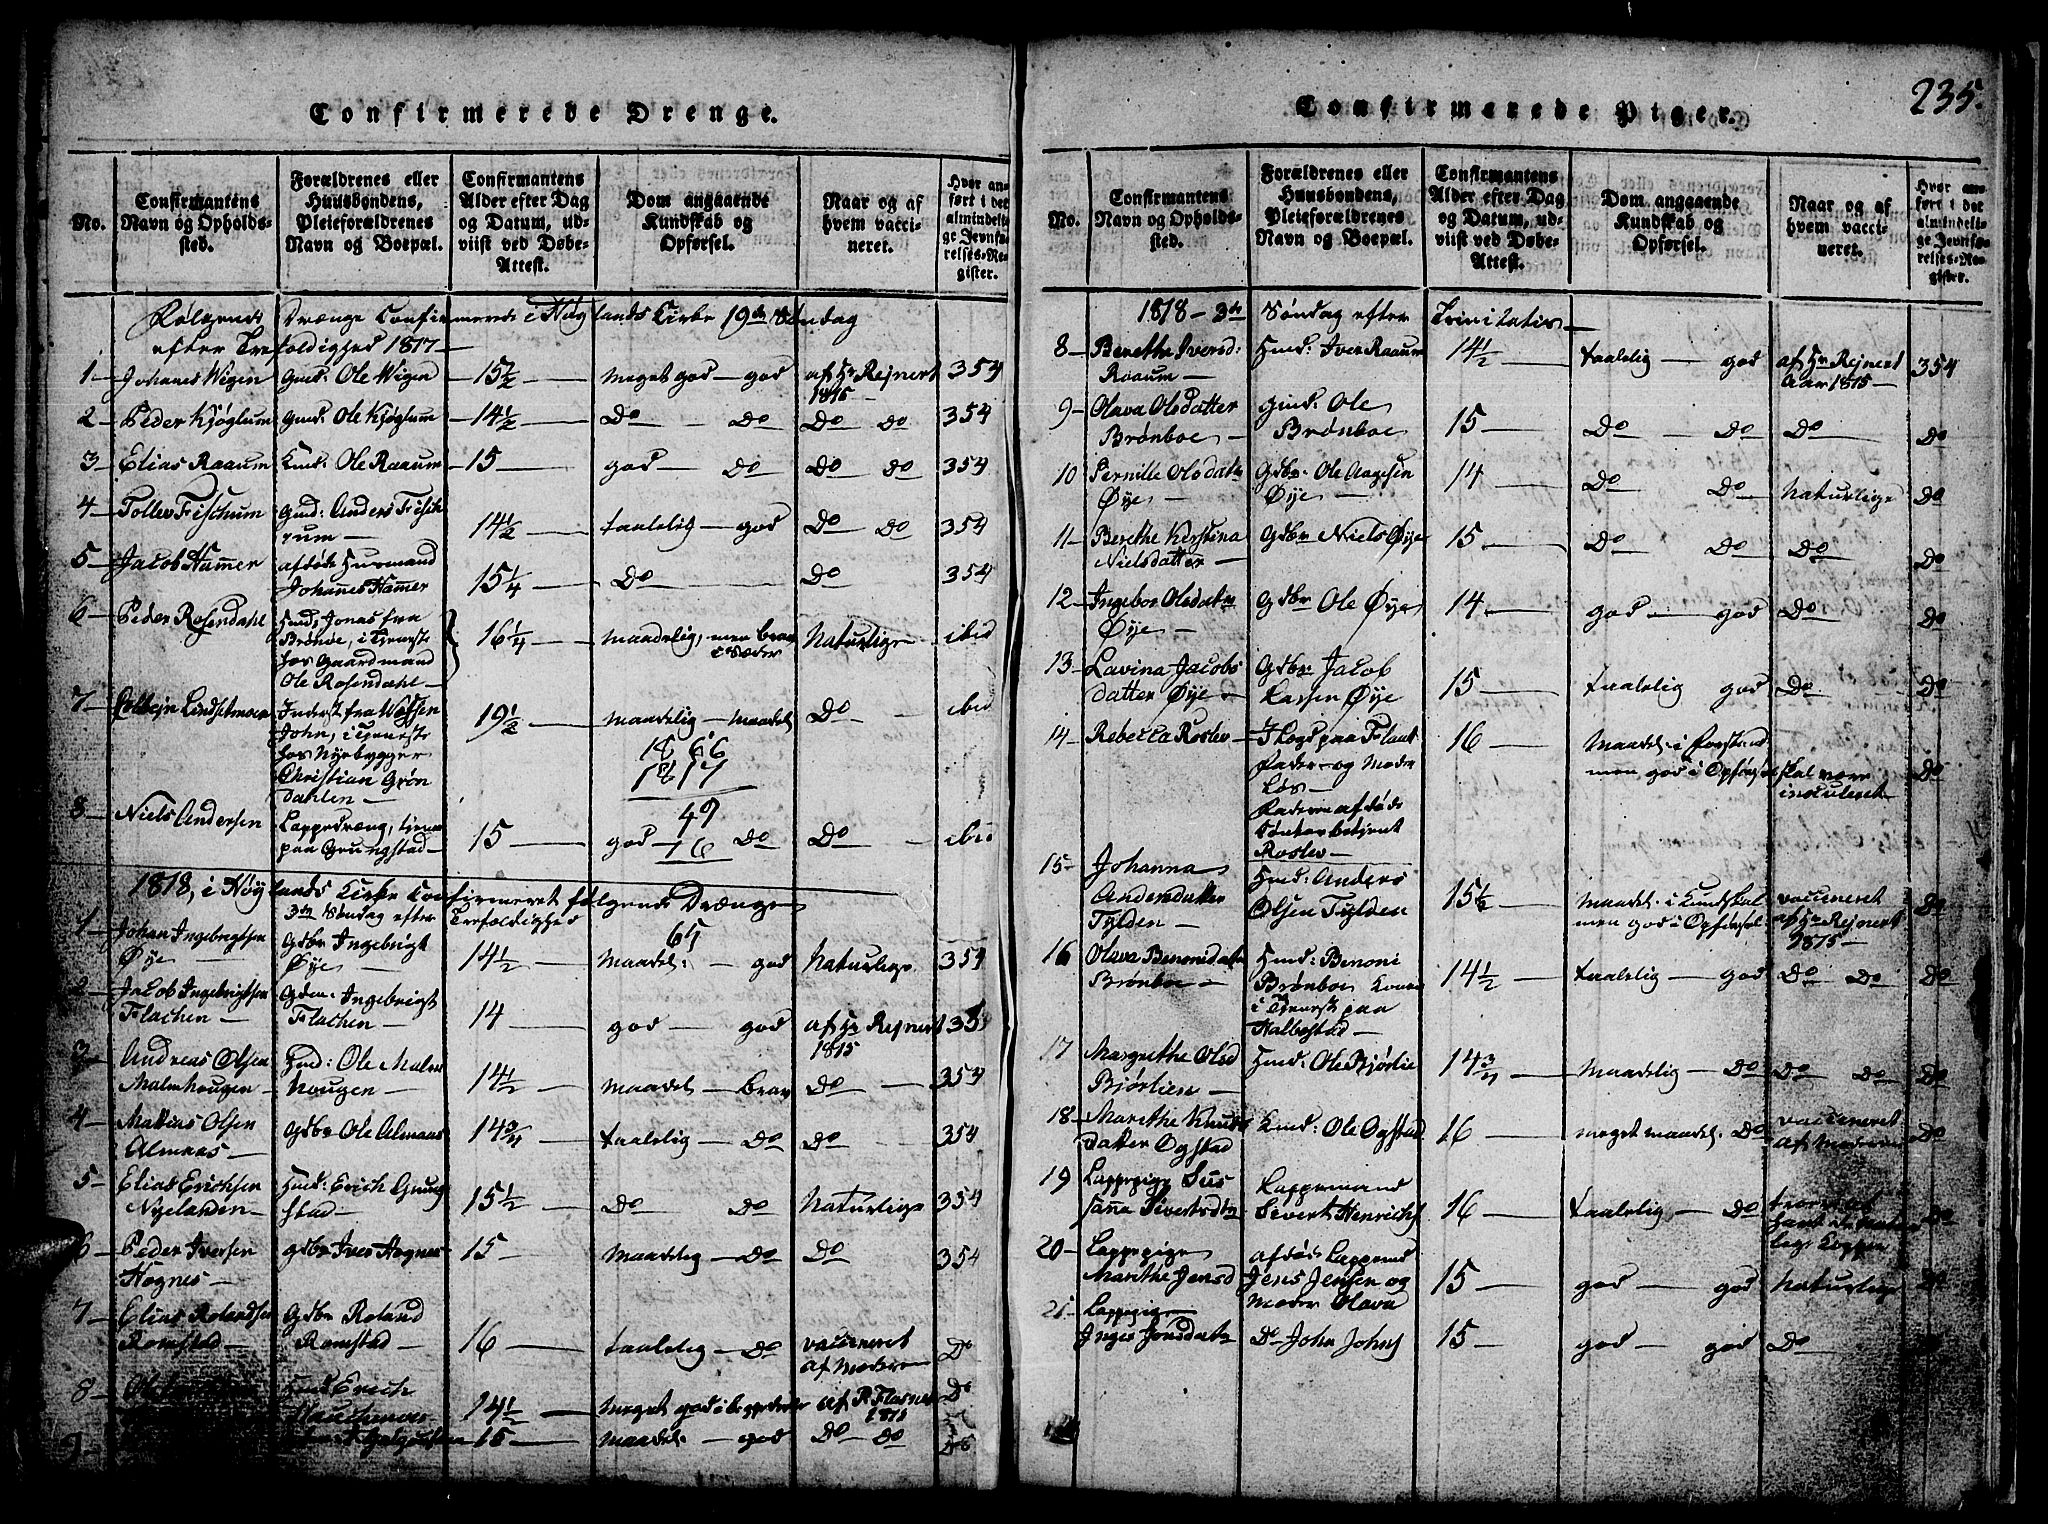 235.
Confirmerede Drenge.
No.
Confirmantens Navn og Opholdssted.
Forældrenes eller Huusbondens, Pleieforældrenes Navn og Boepæl.
Confirmantens Alder efter Dag og Datum, udviist ved Døbe-Attest.
Dom angaaende Kundskab og Opførsel.
Naar og af hvem vaccineret.
Hvor anført i det almindelige Jevnførelses-Register.
Følgende Drænge Confirmerede i Høylands Kirke 19de Søndag
efter Trefoldighed 1817
1 Johanes Wigen Gmd: Ole Wigen 15½ meget god god af Hr Rejnert 1815 354
2 Peder Kjøglum Gmd: Ole Kjøglum 14½ Do Do Do Do 354
3 Elias Raaum Hmd: Ole Raaum 15 god Do Do Do 354
4 Tollev Fischum Gmd: Anders Fischum 14½ taalelig god Do Do 354
5 Jacob Hammer afdøde Huusmand Johannes Hammer 15¼ Do Do 354
6 Peder Rosendahl Hmd, Jonas fra Brønboe, i Tjeneste hos Gaardmand Ole Rosendahl 16¼ maadelig, men brav i Sæder Naturlige ibid
7 Lindsetmoen Inderst fra Wefsen John, i Tjeneste hos Nyebygger Christian Grøndahlen 19½ maadelig maadel Do ibid
1866
1817
49
16
65
8 Niels Andersen Lappedræng, tjener paa Grungstad 15 god Do Do ibid
1818, i Høylands Kirke Confirmeret følgende Drænge
3de Søndag efter Trefoldighed
1 Johan Ingebrigtsen Øye Gdbr Ingebrigt Øye 14½ maadel: god Naturlige 354
2 Jacob Ingebrigtsen Flachen Gdm: Ingebrigt Flachen 14 god god af Hr Rejnert 1815 35
3 Andreas Olsen Malmhougen Hmd: Ole Malmhougen 14½ maadel brav Do 354
4 Mathias Olsen Almaas Gdbr Ole Almaas 14¾ taalelig Do Do 354
5 Elias Erichsen Nyelanden Hmd: Erich Grungstad 15½ Do Do Naturlige 354
6 Peder Iversen Høgnes gdbr Iver Høgnes 15 Maadelig Do Do 354
7 Elias Rolandsen Romstad Gdbr Roland Romstad 16 taalelig Do vaccineret af Moderen Do
8 Hmd Erich 14½ Meget god i begge deler af R Flasnes 1811 Do
9 15 maadel: god Do Do Do
Confirmerede Piger.
No.
Confirmantens Navn og Opholdssted.
Forældrenes eller Huusbondens, Pleieforældrenes Navn og Boepæl.
Confirmantens Alder efter Dag og Datum, udviist ved Døbe-Attest.
Dom angaaende Kundskab og Opførsel.
Naar og af hvem vaccineret.
Hvor anført i det almindelige Jevnførelses-Register.
1818 - 3de Søndag efter Trinitatis
8 Berethe Iversd: Raaum Hmd: Iver Raaum 14½ taalelig god af Hr Rejnert Aar 1815 354
9 Olava Olsdatter Brønboe Gmd: Ole Brønboe 15 Do Do Do Do
10 Pernille Olsdatr Øye Gdbr: Ole Aagesen Øye 14 Do Do Naturlige Do
11 Berethe Kirstina Nielsdatter Gdbr Niels Øye 15 Do Do Do Do
12 Ingebor Olsdatr Øye Gdbr Ole Øye 14 god god Do Do
13 Lavina Jacobsdatter Øye Gdbr Jacob Larsen Øye 15 taalelig god Do Do
14 Rebecca Roslev I Logi paa Flaat Fader og Moder Løs Faderen afdøde Roslev 16 Maadel: i Forstand men god i Opførsel skal være inoculeret Do
15 Johanna Andersdatter Tylden Hmd: Anders Olsen Tylden 15⅙ Maadel: i Kundskab men god i Opførsel vaccineret af Hr Rejnert 1815 Do
16 Olava Benonisdatr Brønboe Hmd: Benoni Brønboe i Tjenest paa Halbostad 14½ taalelig god Do Do Do
17 Margrethe Olsd Bjørlien Hmd: Ole Bjørlie 14¾ Maadelig Do Do Do Do
18 Marethe Knudsdatter Ogstad Hmd: Ole Ogstad 16 meget maadel. Do vaccineret af Moderen Do
19 Lappepige Susanna Sivertsdtr Lappemand Sivert Henrichs 16 taalelig Do troer at have de Naturlige Copper Do
20 Lappepige Marethe Jensd afdøde Lappemd Jens Jensen og Moder Olava 15 god god Naturlige Do
21 Lappepig Inger Jonsdatr Do John Johns 15 god god Do